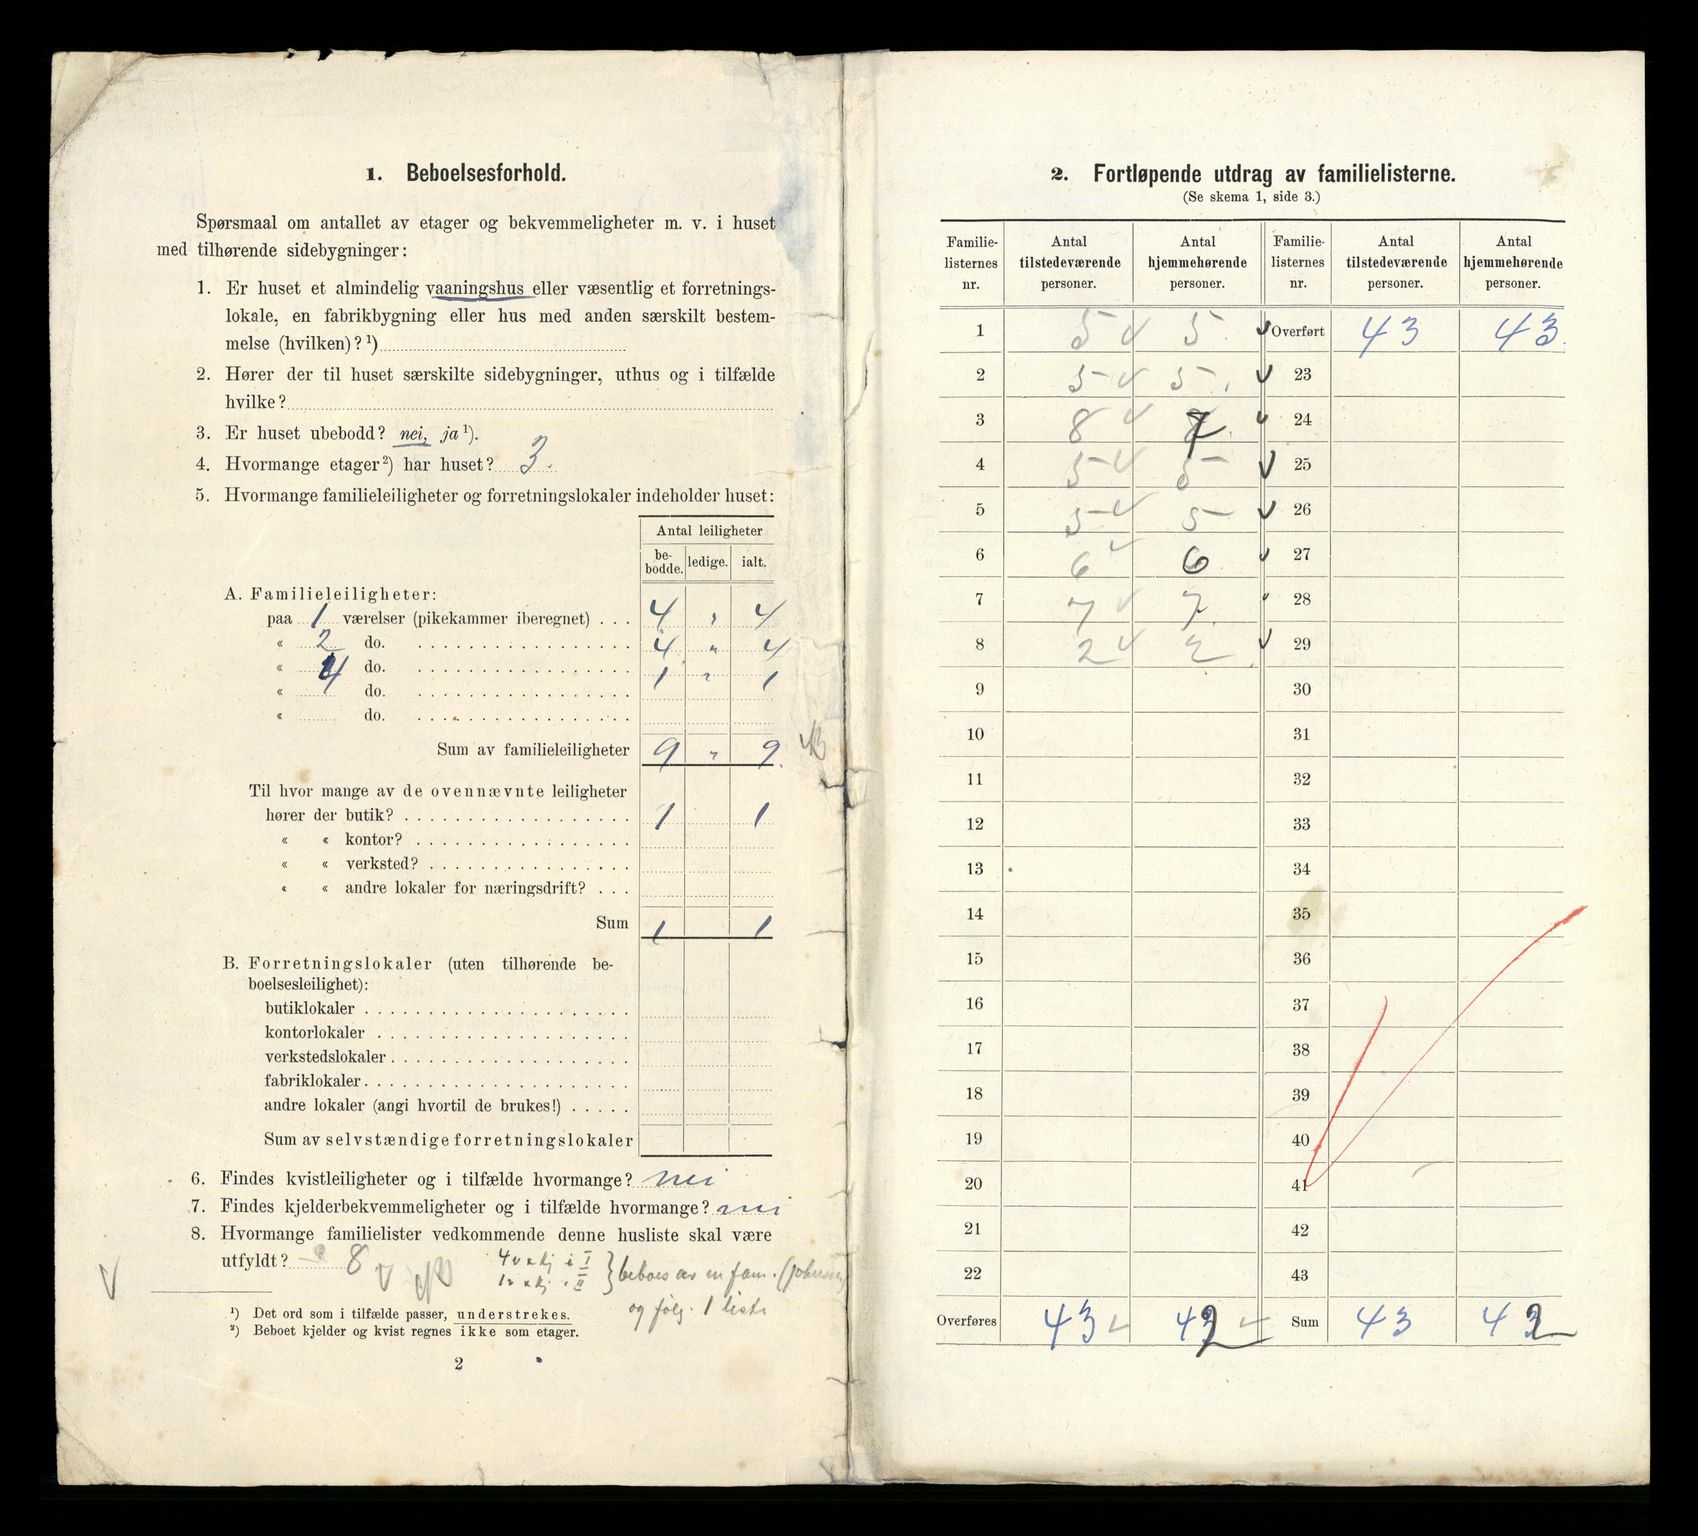 1. Beboelsesforhold.
Spørsmaal om antallet av etager og bekvemmeligheter m. v. i huset
med tilhørende sidebygninger:
1. Er huset et almindelig vaaningshus eller væsentlig et forretnings-
lokale, en fabrikbygning eller hus med anden særskilt bestem-
melse (hvilken)? 1)
2. Hører der til huset særskilte sidebygninger, uthus og i tilfælde
hvilke?
3. Er huset ubebodd? nei, ja 1).
4. Hvormange etager 2) har huset? 3.
5. Hvormange familieleiligheter og forretningslokaler indeholder huset:
Antal leiligheter
be-
bodde. ledige. ialt.
A. Familieleiligheter:
paa 1 værelser (pikekammer iberegnet) . . . 4 " 4
« 2 do. 4 " 4
« 4 do. 1 " 1
« do.
« do.
Sum av familieleiligheter 9 " 9.
Til hvor mange av de ovennævnte leiligheter
hører der butik? 1 1
« « kontor?
« « verksted?
« « andre lokaler for næringsdrift?
Sum 1 1
B. Forretningslokaler (uten tilhørende be-
boelsesleilighet):
butiklokaler
kontorlokaler
verkstedslokaler
fabriklokaler
andre lokaler (angi hvortil de brukes!)
Sum av selvstændige forretningslokaler
6. Findes kvistleiligheter og i tilfælde hvormange? nei
7. Findes kjelderbekvemmeligheter og i tilfælde hvormange? nei
8. Hvormange familielister vedkommende denne husliste skal være
utfyldt? 8
4 v x kj i I } beboes av en fam. (Johnsen)
1 v x kj i II
og følg. 1 liste
1) Det ord som i tilfælde passer, understrekes.
2) Beboet kjelder og kvist regnes ikke som etager.
2
2. Fortløpende utdrag av familielisterne.
(Se skema 1, side 3.)
Familie-listernes nr. Antal tilstedeværende personer. Antal hjemmehørende personer. Familie-listernes nr. Antal tilstedeværende personer. Antal hjemmehørende personer.
1 5 5. Overført 43 43.
2 5 5. 23
3 8 7. 24
4 5 5 25
5 5 5 26
6 6 6 27
7 7 7. 28
8 2 2. 29
9 30
10 31
11 32
12 33
13 34
14 35
15 36
16 37
17 38
18 39
19 40
20 41
21 42
22 43
Overføres 43 42 Sum 43 42